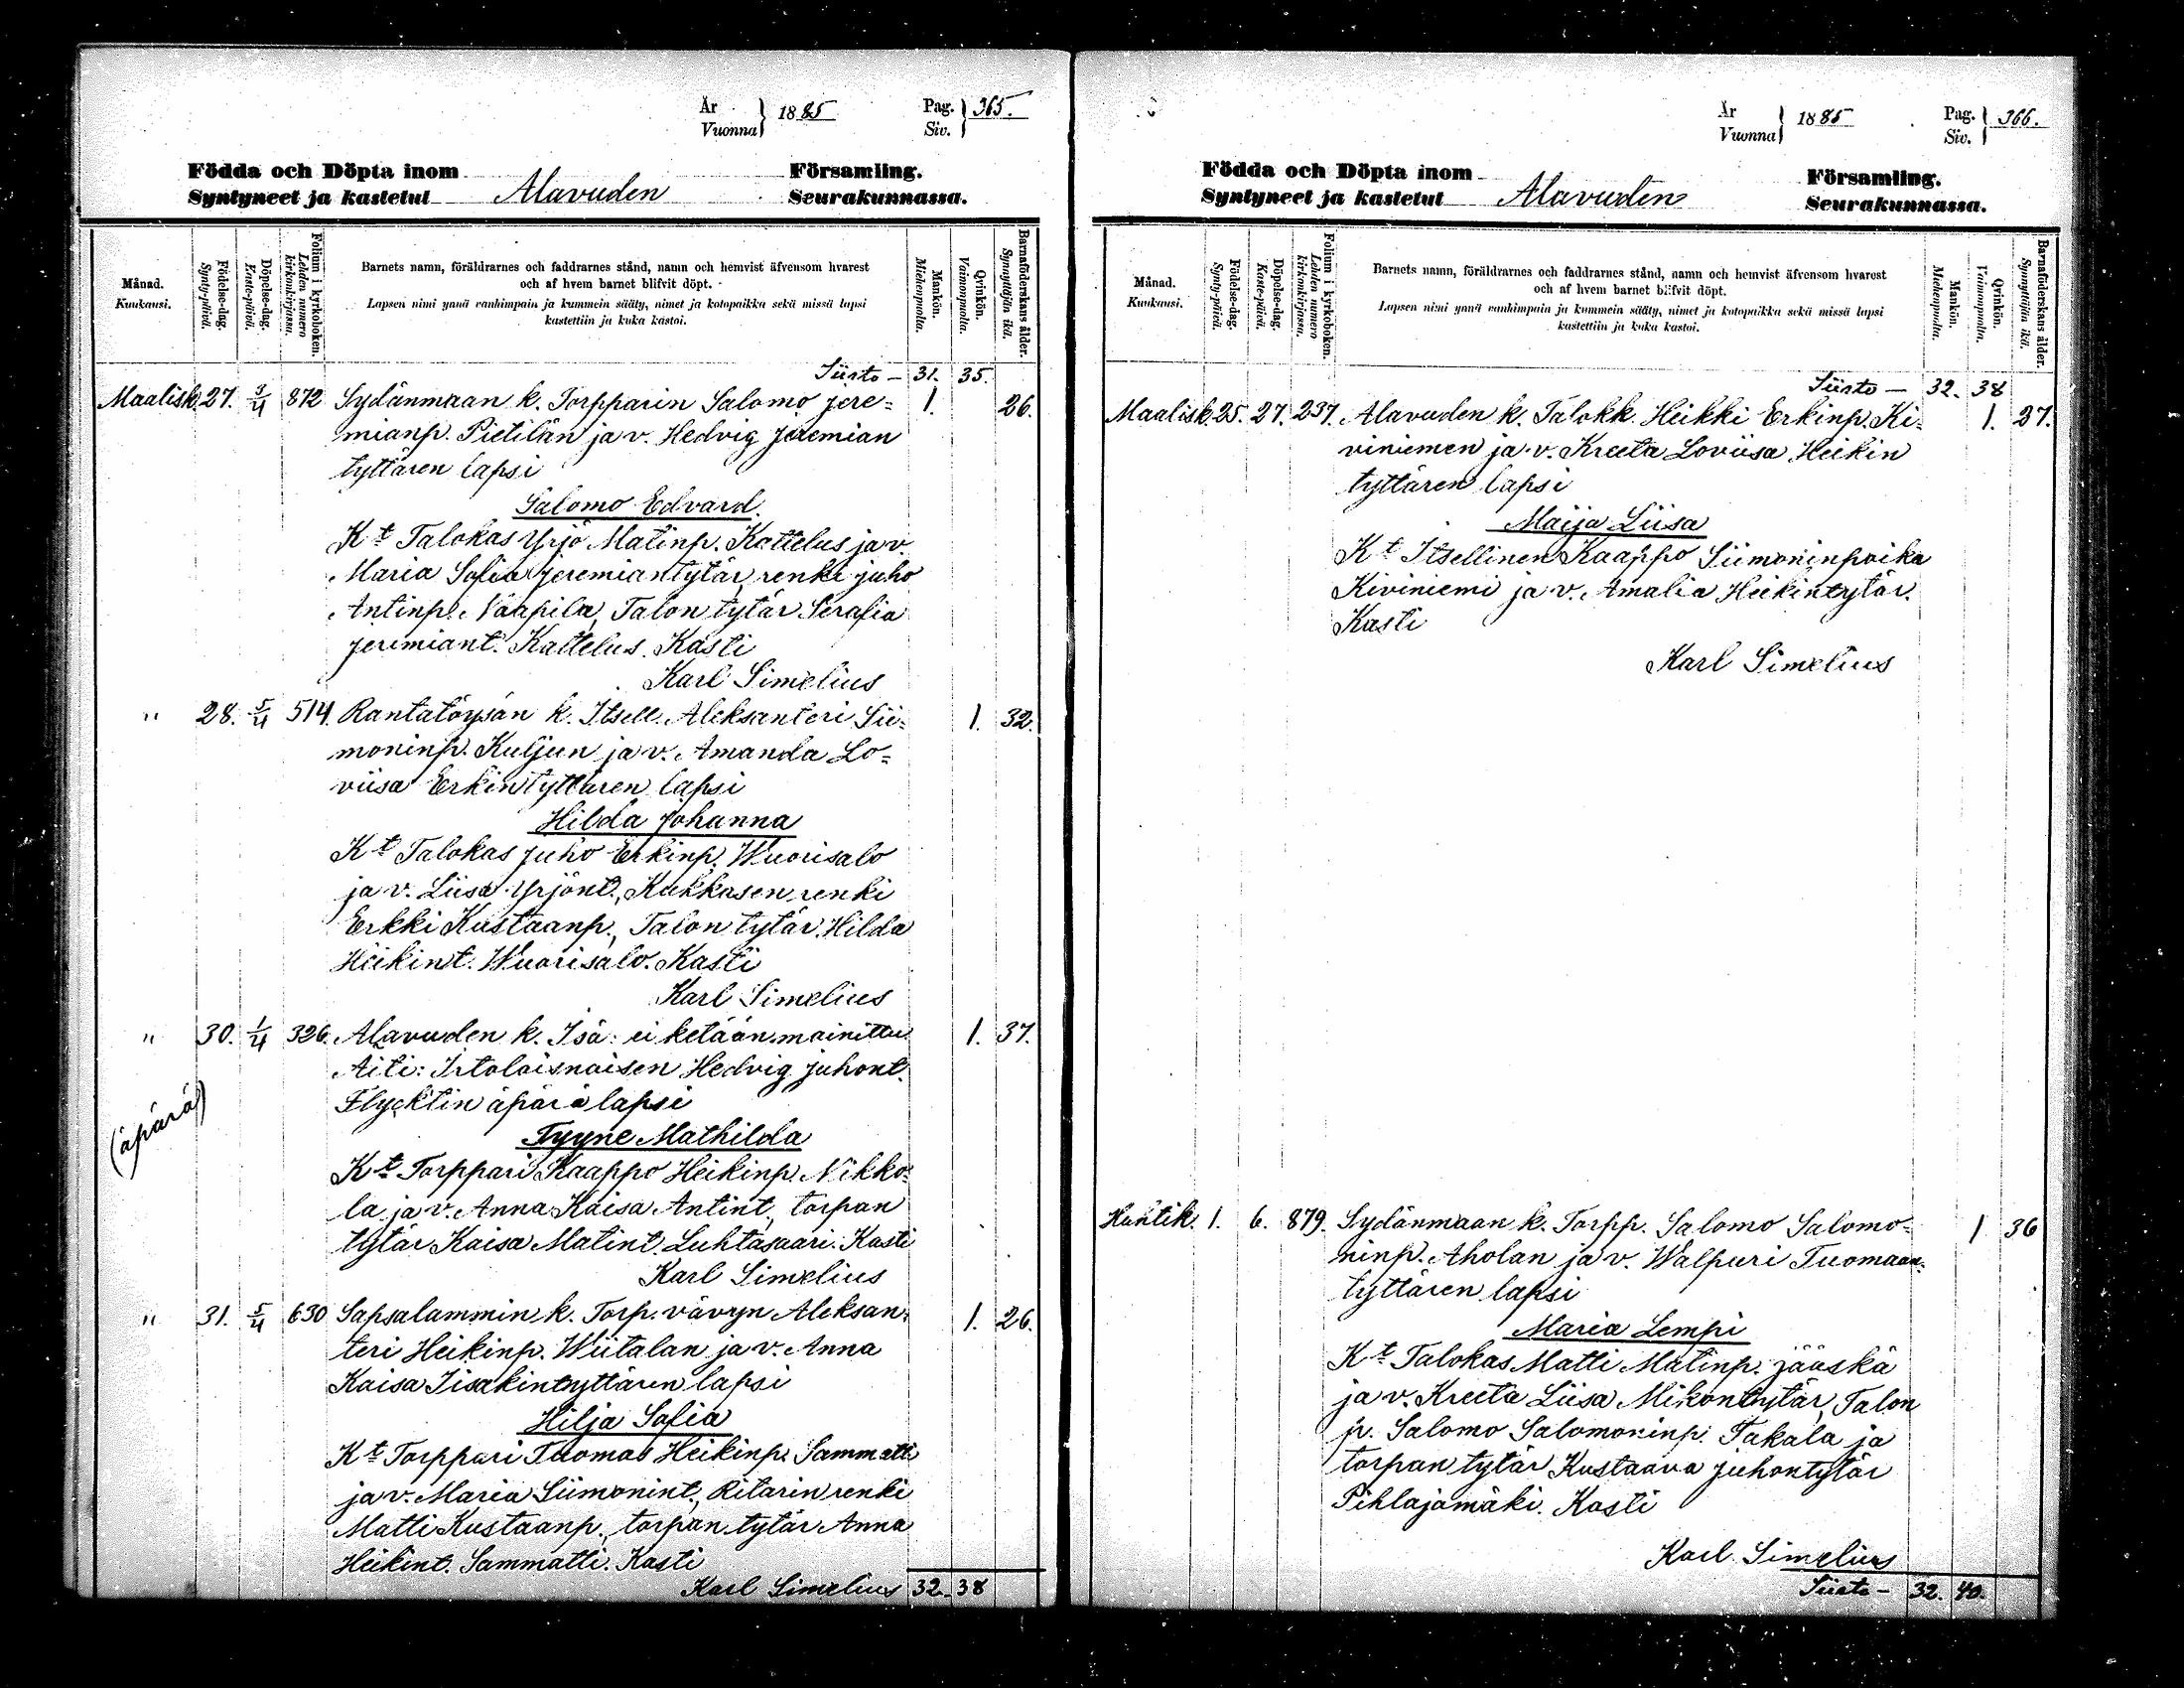 År
Vuonna } 1885
Pag.
Siv. } 365.
Födda och Döpta inom Församling.
Syntyneet ja kastetut Alavuden Seurakunnassa.
Månad.
Kuukausi.
Födelse-dag.
Synty-päivä.
Döpelse-dag.
Kaste-päivä.
Folium i kyrkoboken.
Lehden numero kirkonkirjassa.
Barnets namn, föräldrarnes och faddrarnes stånd, namn och hemvist äfvensom hvarest
och af hvem barnet blifvit döpt.
Lapsen nimi ynnä vanhimpain ja kummein sääty, nimet ja kotopaikka sekä missä lapsi
kastettiin ja kuka kastoi.
Mankön.
Miehenpuolta.
Qvinkön.
Vaimonpuolta.
Barnaföderskans ålder.
Synnyttäjän ikä.
Siirto — 31. 35.
Maalisk. 27. 3/4 872 Sydänmaan k. Torpparin Salomo Jere= 1. 26.
mianp. Pietilän ja v. Hedvig Jeremian
tyttären lapsi
Salomo Edvard.
Kt Talokas Yrjö Matinp. Kattelus ja v.
Maria Sofia Jeremiantytär, renki Juho
Antinp. Naapila, Talon tytär Serafia
Jeremiant. Kattelus. Kasti
Karl Simelius
" 28. 5/4 514. Rantatöysän k. Itsell. Aleksanteri Sii= 1. 32.
moninp. Kuljun ja v. Amanda Lo=
viisa Erkintyttären lapsi
Hilda Johanna
Kt Talokas Juho Erkinp. Wuorisalo
ja v. Liisa Yrjönt., Kukkasen renki
Erkki Kustaanp., Talon tytär Hilda
Heikint. Wuorisalo. Kasti
Karl Simelius
" 30. 1/4 326. Alavuden k. Isä: ei ketään mainittu 1. 37.
Äiti: Irtolaisnaisen Hedvig Juhont.
Flycktin äpärä lapsi
(äpärä)
Tyyne Mathilda
Kt Torppari Kaappo Heikinp. Nikko=
la ja v. Anna Kaisa Antint, torpan
tytär Kaisa Matint. Luhtasaari. Kasti
Karl Simelius
" 31. 5/4 630 Sapsalammin k. Torp. vävyn Aleksan= 1. 26.
teri Heikinp. Wiitalan ja v. Anna
Kaisa Iisakintyttären lapsi
Hilja Sofia
Kt Torppari Tuomas Heikinp. Sammatti
ja v. Maria Siimonint., Ritarin renki
Matti Kustaanp., torpan tytär Anna
Heikint. Sammatti. Kasti
Karl Simelius 32. 38
År
Vuonna } 1885
Pag.
Siv. } 366.
Födda och Döpta inom Församling.
Syntyneet ja kastetut Alavuden Seurakunnassa.
Månad.
Kuukausi.
Födelse-dag.
Synty-päivä.
Döpelse-dag.
Kaste-päivä.
Folium i kyrkoboken.
Lehden numero kirkonkirjassa.
Barnets namn, föräldrarnes och faddrarnes stånd, namn och hemvist äfvensom hvarest
och af hvem barnet blifvit döpt.
Lapsen nimi ynnä vanhimpain ja kummein sääty, nimet ja kotopaikka sekä missä lapsi
kastettiin ja kuka kastoi.
Mankön.
Miehenpuolta.
Qvinkön.
Vaimonpuolta.
Barnaföderskans ålder.
Synnyttäjän ikä.
Siirto — 32. 38
Maalisk. 25. 27. 237. Alavuden k. Talokk. Heikki Erkinp. Ki= 1. 27.
viniemen ja v. Kreeta Loviisa Heikin
tyttären lapsi
Maija Liisa
Kt Itsellinen Kaappo Siimoninpoika
Kiviniemi ja v. Amalia Heikintytär.
Kasti
Karl Simelius
Huhtik. 1. 6. 879. Sydänmaan k. Torpp. Salomo Salomo= 1 36
ninp. Aholan ja v. Walpuri Tuomaan=
tyttären lapsi
Maria Lempi
Kt Talokas Matti Matinp. Jääskä
ja v. Kreeta Liisa Mikontytär, Talon
p. Salomo Salomoninp. Takala ja
torpan tytär Kustaava Juhontytär
Pihlajamäki. Kasti
Karl Simelius
Siirto — 32. 40.